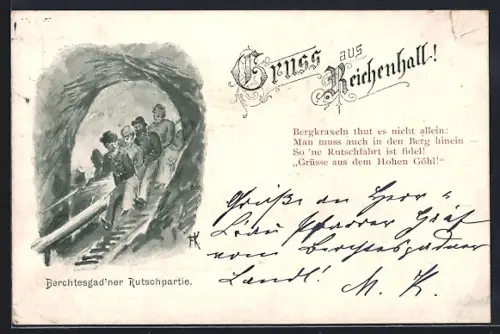 Gruss aus
Reichenhall!
Bergkraxeln thut es nicht allein:
Man muss auch in den Berg hinein —
So 'ne Rutschfahrt ist fidel!
„Grüsse aus dem Hohen Göhl!“
Grüße an Herr u
Frau Pfarrer Gräf
vom Berchtesgadner
Landl! M. K.
HK
Berchtesgad'ner Rutschpartie.